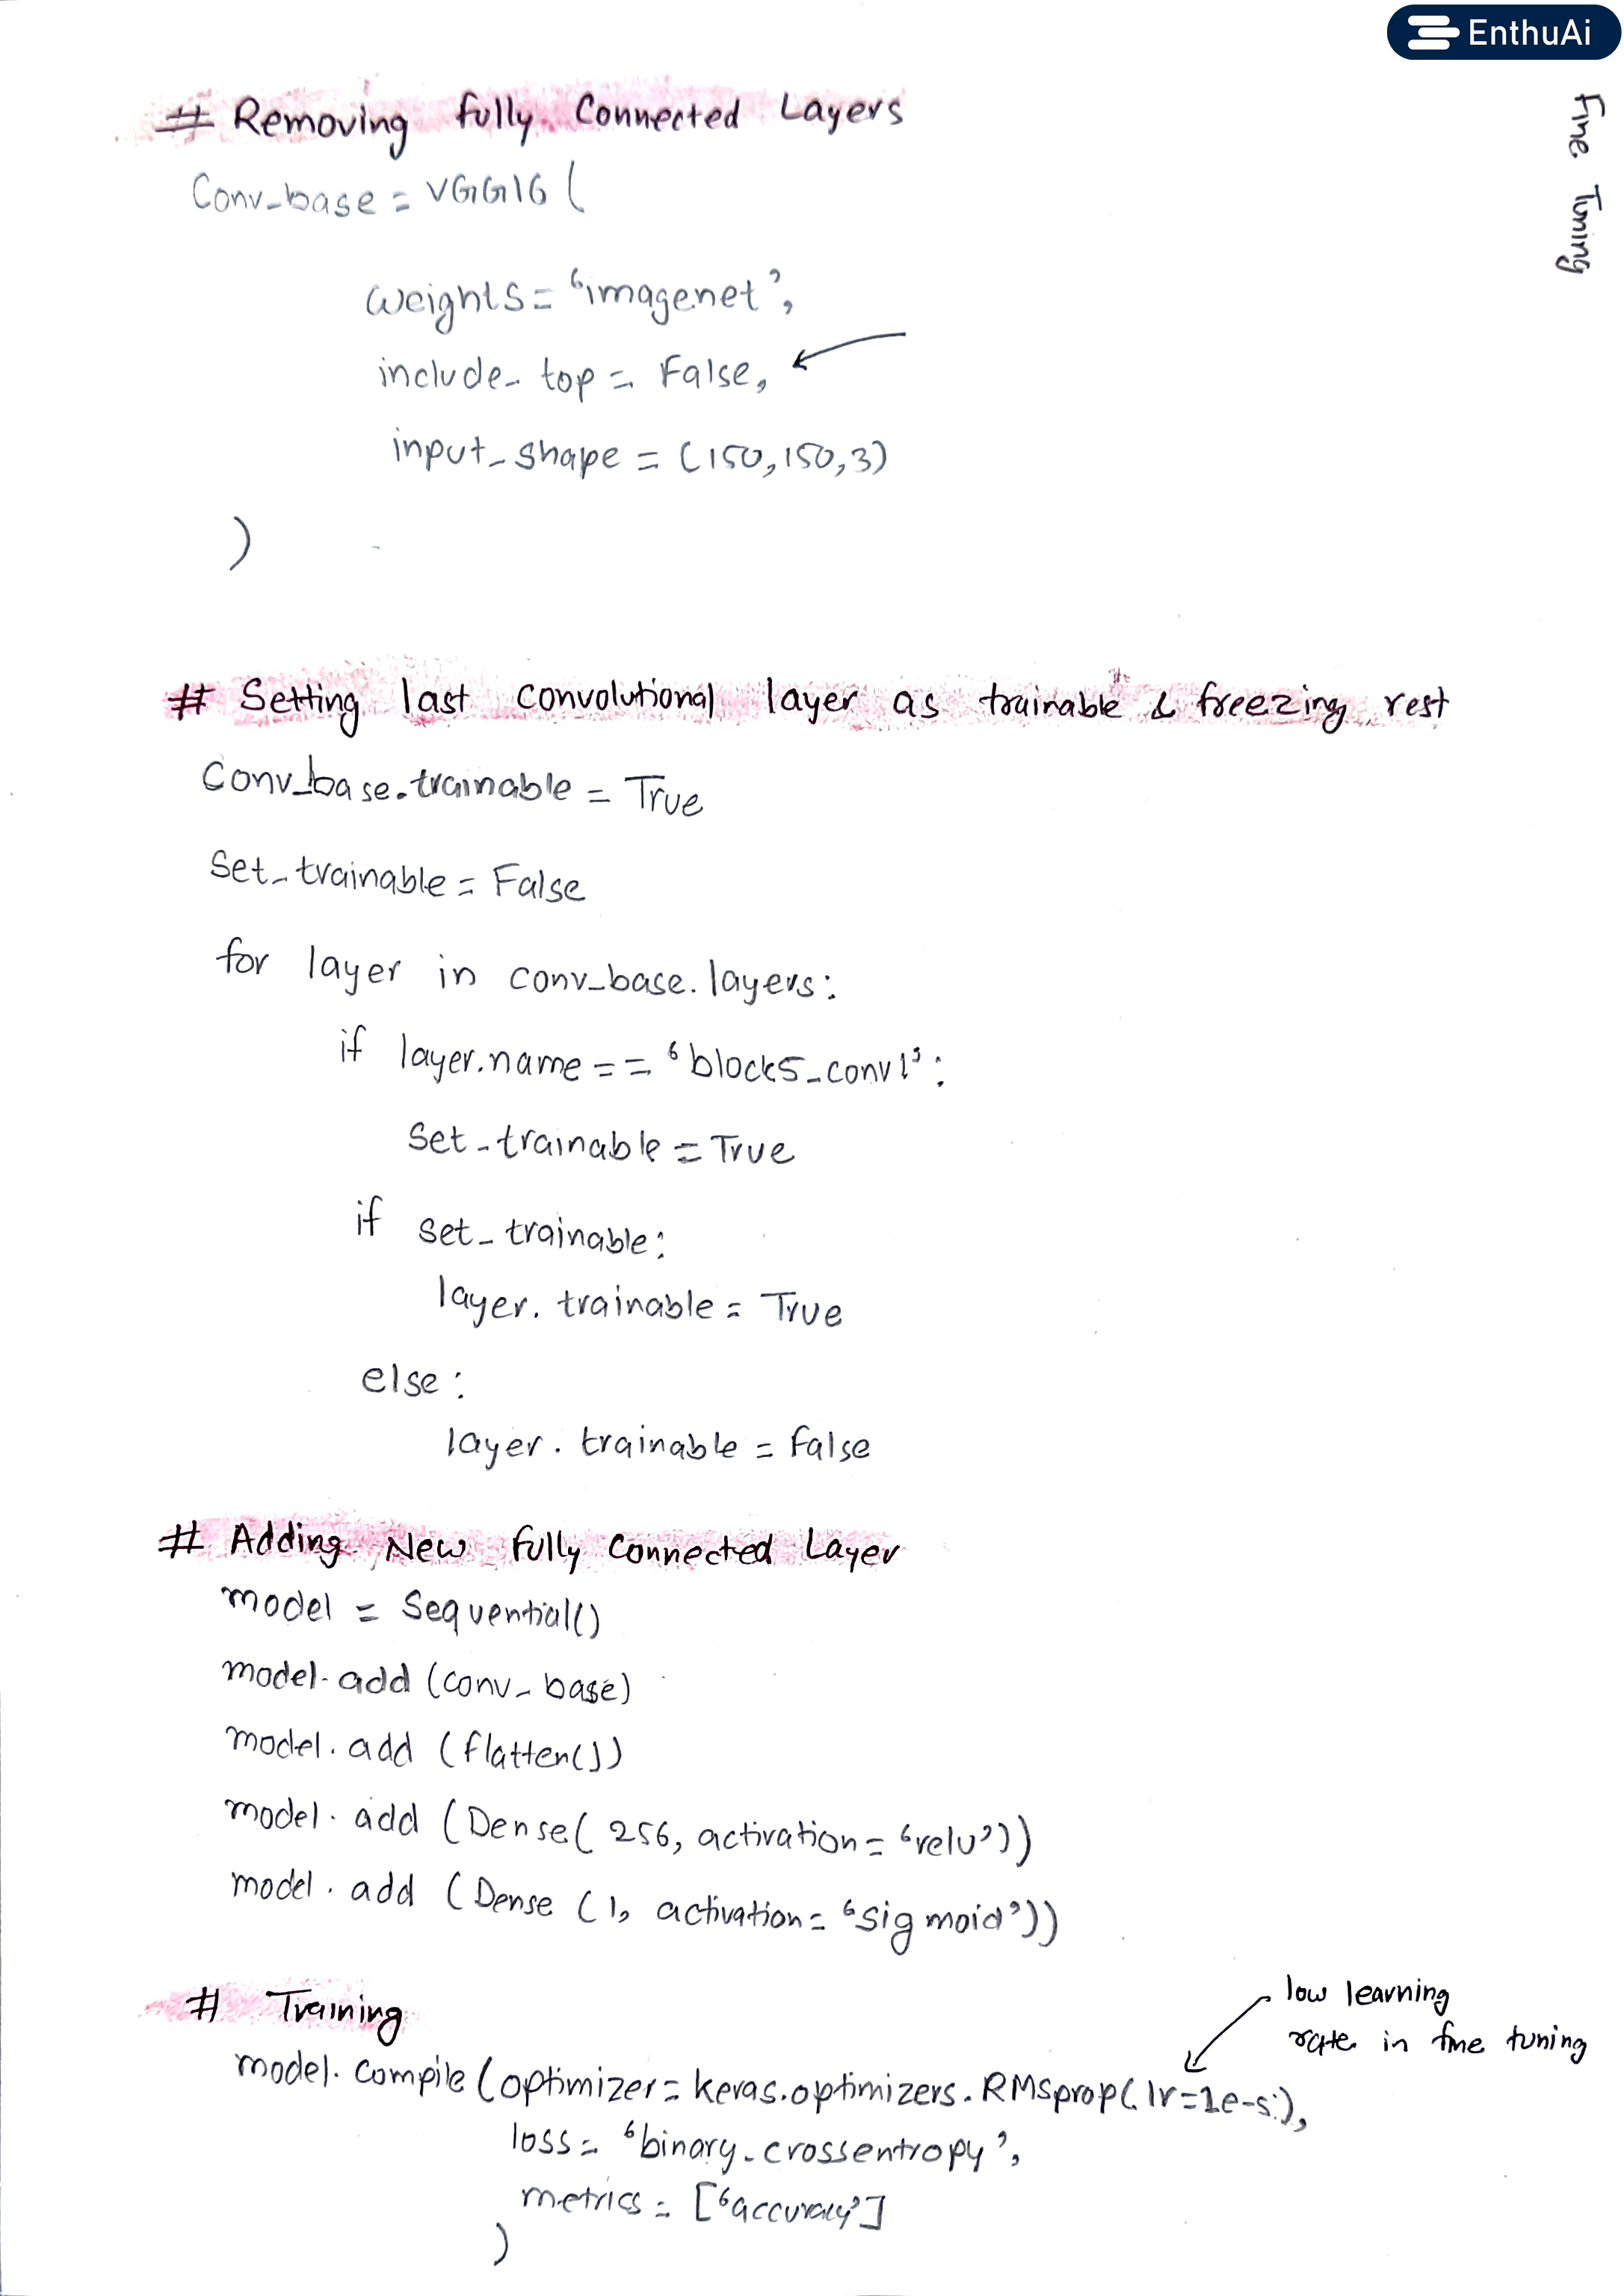 EnthuAi
Fine Tuning
# Removing fully Connected Layers
Conv_base = VGG16 (
weights = 'imagenet',
include_top = False,
input_shape = (150,150,3)
)
# Setting last convolutional layer as trainable & freezing rest
Conv_base.trainable = True
Set_trainable = False
for layer in conv_base.layers:
if layer.name == 'block5_conv1':
Set_trainable = True
if set_trainable:
layer.trainable = True
else:
layer.trainable = False
# Adding New fully Connected Layer
model = Sequential()
model.add (conv_base)
model.add (flatten())
model.add (Dense( 256, activation = 'relu'))
model.add (Dense (1, activation = 'sigmoid'))
# Training
low learning
rate in fine tuning
model.compile (optimizer = keras.optimizers.RMSprop(lr=1e-5),
loss = 'binary_crossentropy',
metrics = ['accuracy']
)